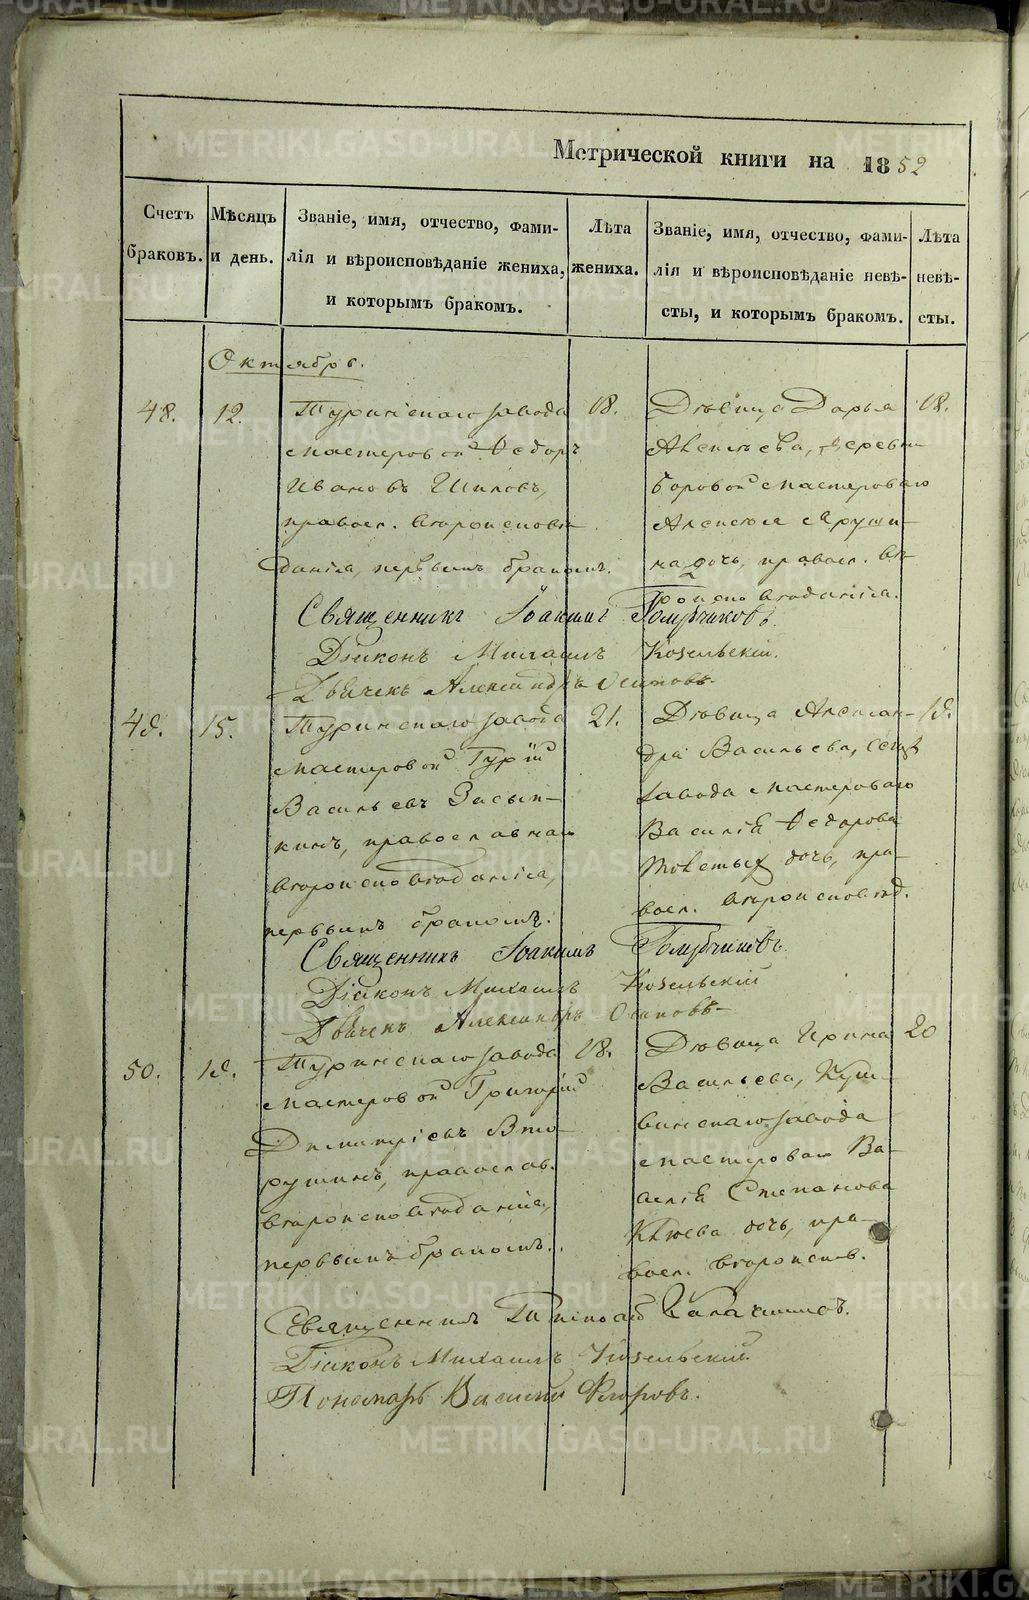 Метрической книги на 1852
Счетъ браковъ.
Мѣсяцъ и день.
Званіе, имя, отчество, фами-
лія и вѣроисповѣданіе жениха,
и которымъ бракомъ.
Лѣта жениха.
Званіе, имя, отчество, фами-
лія и вѣроисповѣданіе невѣ-
сты, и которымъ бракомъ.
Лѣта невѣ-
сты.
Октябрь.
48.
12.
Туринскаго завода
мастеровой Ѳедоръ
Ивановъ Шиловъ,
правосл. вѣроисповѣ
данія, первымъ бракомъ.
18.
Дѣвица Дарья
Алексѣева, деревни
Боровой мастероваго
Алексѣя
на дочь, правосл. вѣ
роисповѣданія.
18.
Священникъ Іоакимъ Голубчиковъ.
Діаконъ Михаилъ Козельскій.
Дьячекъ Александръ Осиповъ
49.
15.
Туринскаго завода
мастеровой Гурій
Васильевъ Засып-
кинъ, православнаго
вѣроисповѣданія,
первымъ бракомъ.
21.
Дѣвица Алексан-
дра Васильева, сего
завода мастероваго
Василія Ѳедорова
Толстых дочь, пра-
восл. вѣроисповѣд.
19.
Священникъ Іоакимъ Голубчиковъ
Діаконъ Михаилъ Козельскій
Дьячекъ Александръ Осиповъ
50.
19.
Туринскаго завода
мастеровой Григорій
Димитріевъ Вто-
рушинъ, православ.
вѣроисповѣданія,
первымъ бракомъ.
18.
Дѣвица Ирина
Васильева, Куш-
винскаго завода
мастероваго Ва-
силія Степанова
дочь, пра-
восл. вѣроиспов.
20
Священникъ
Діаконъ Михаилъ Козельскій.
Пономарь Василій Флоровъ.
METRIKI.GASO-URAL.RU